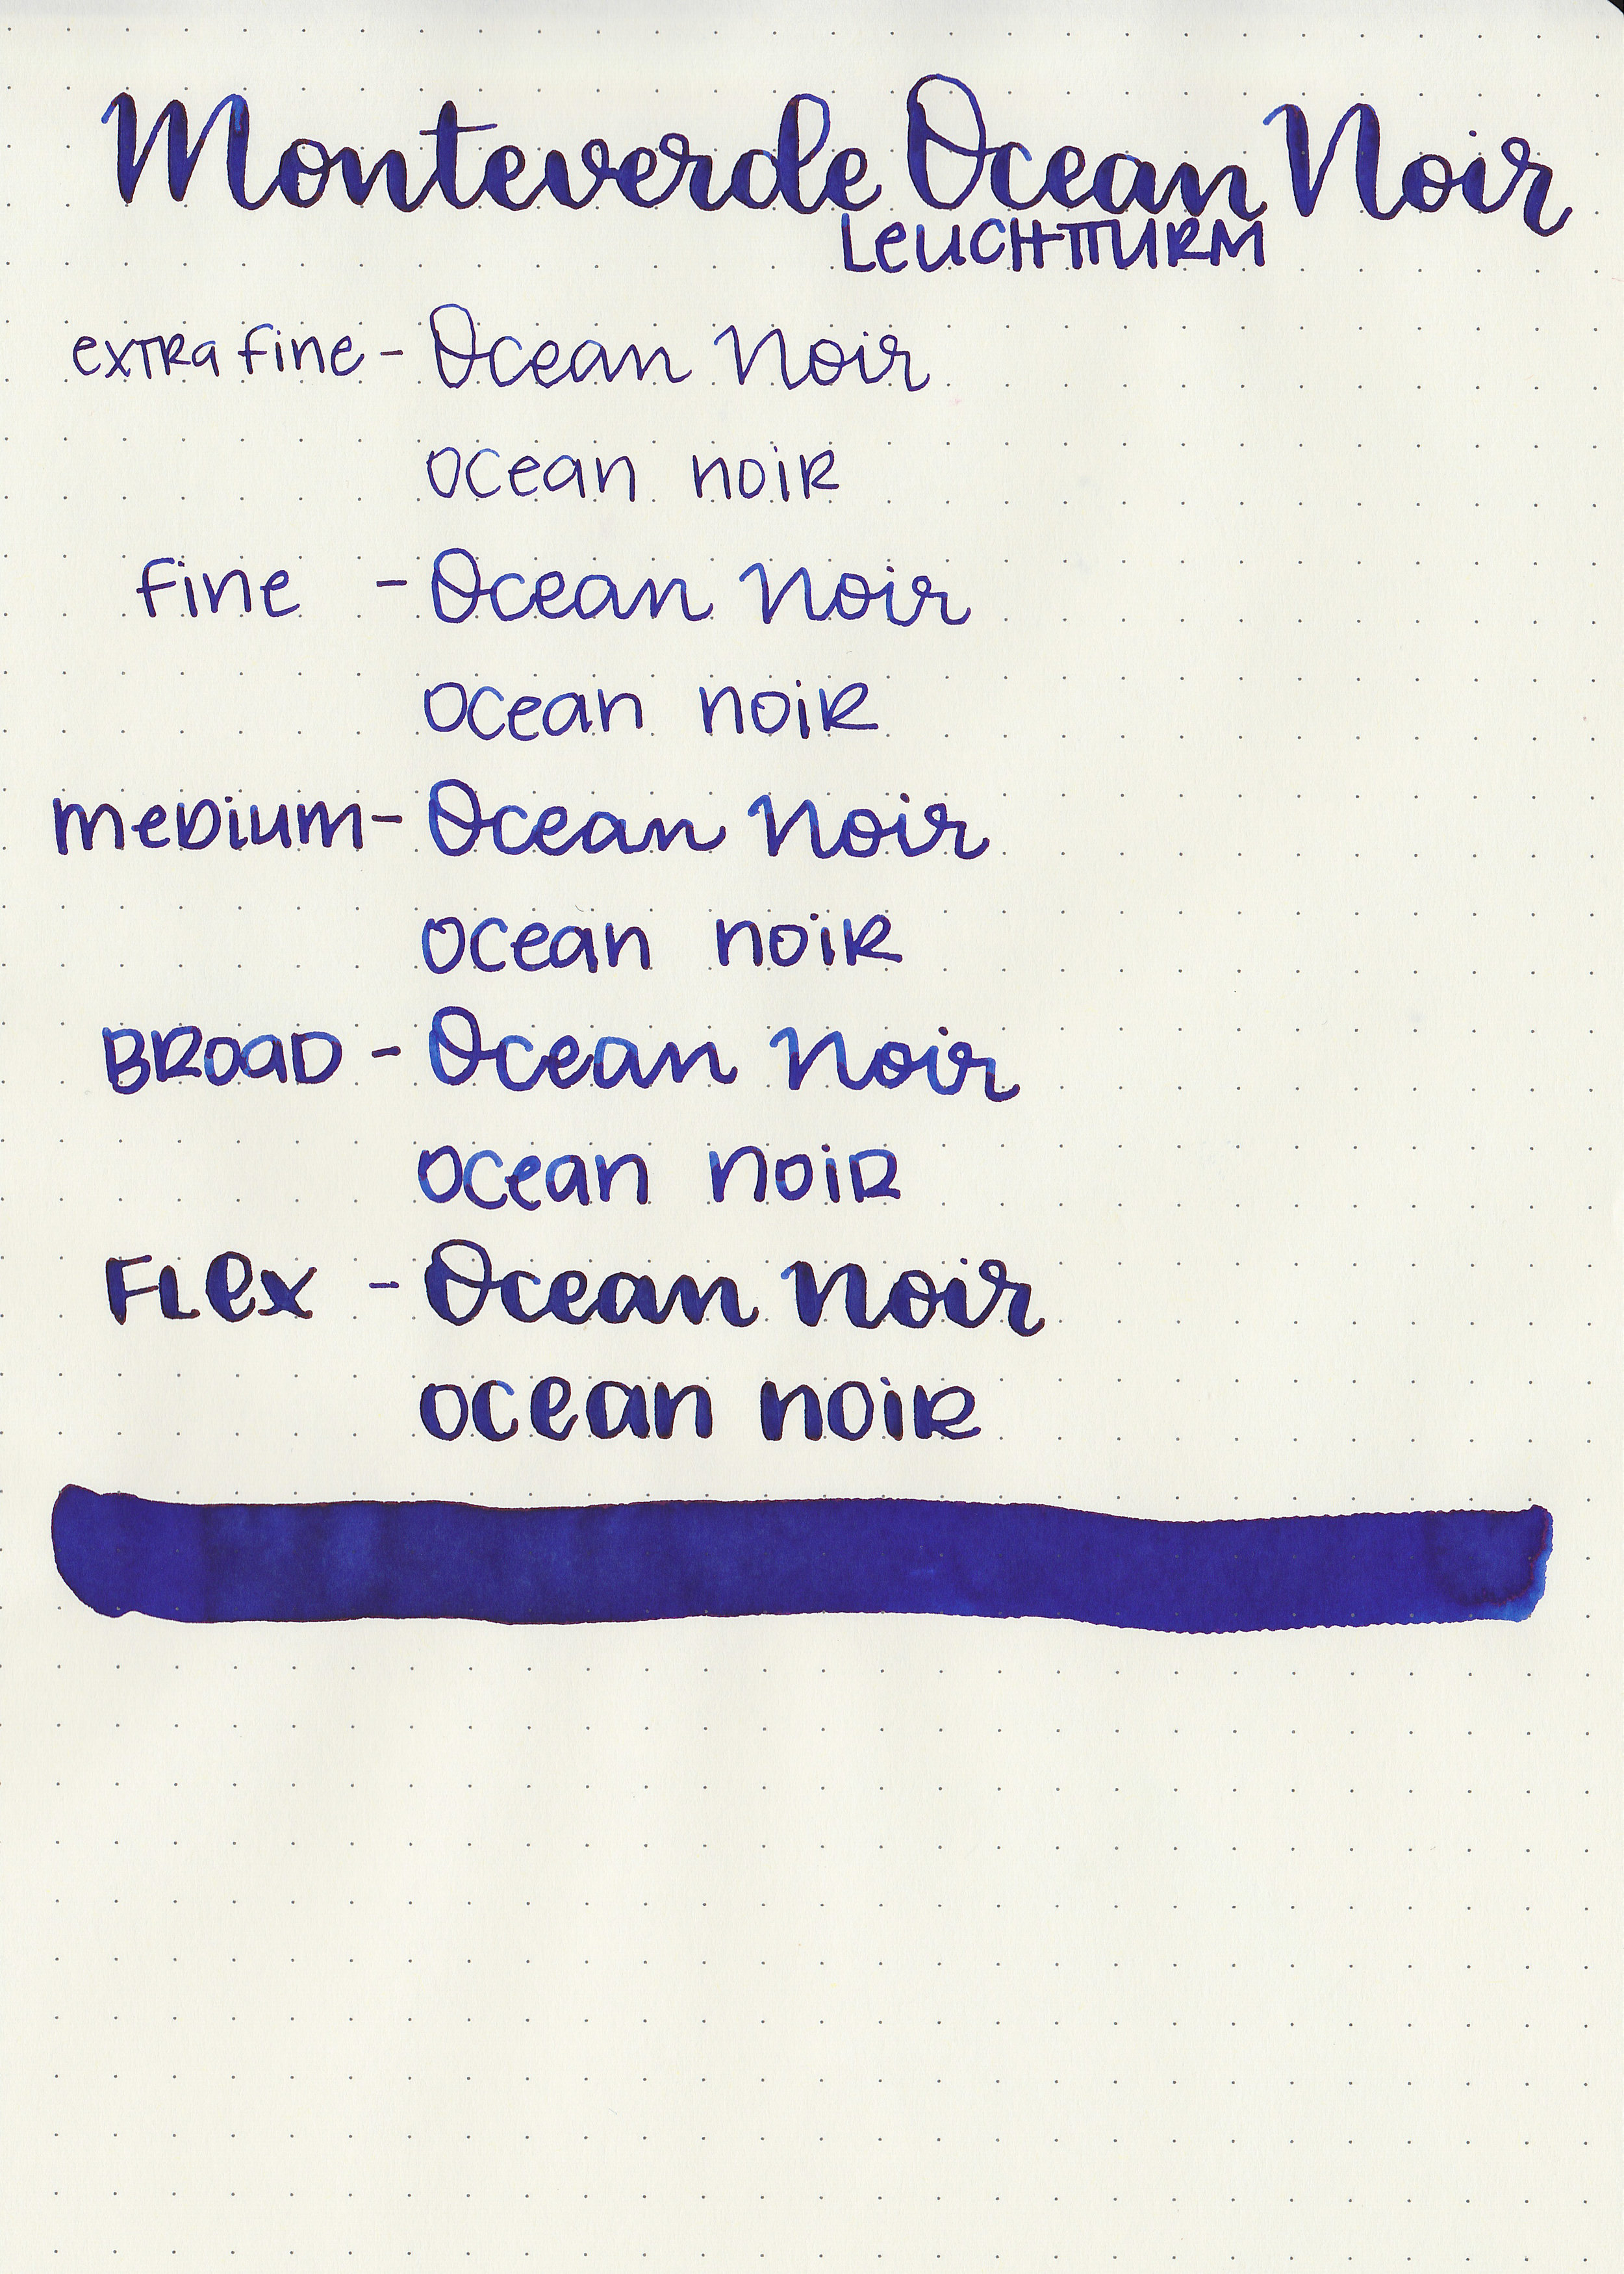 Monteverde Ocean Noir
LEUCHTTURM
extra fine - Ocean Noir
ocean noir
fine - Ocean Noir
ocean noir
medium - Ocean Noir
ocean noir
BROAD - Ocean Noir
ocean noir
FLex - Ocean Noir
ocean noir